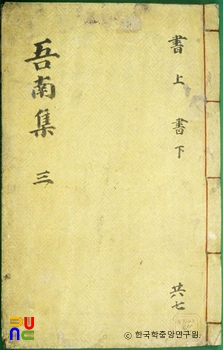 吾南集 三
書上 書下
共七
© 한국학중앙연구원